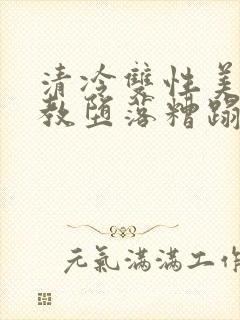 清冷雙性美
教墮落糟蹋
元氣滿滿工作